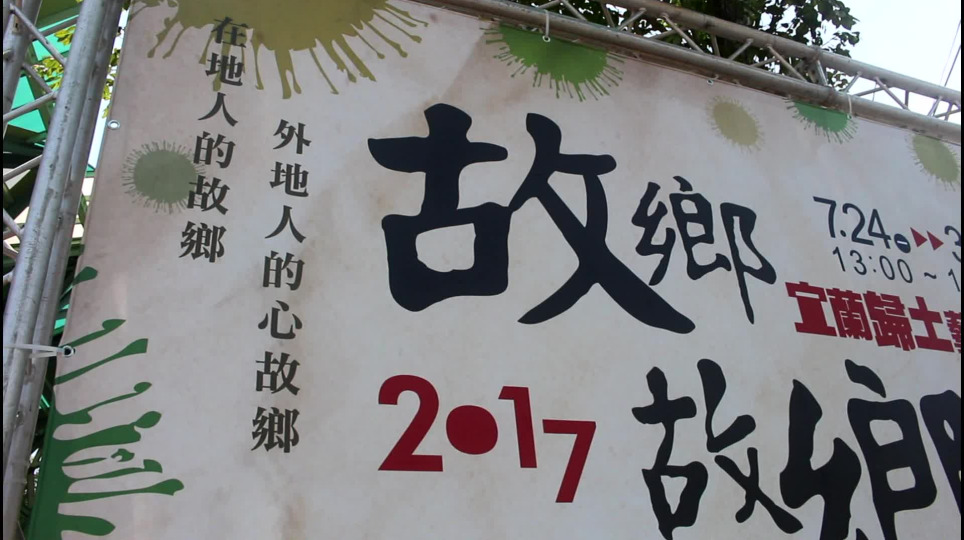 在地人的故鄉
外地人的心故鄉
故鄉
7.24
13:00 ~ 1
宜蘭歸土藝
2017
故鄉